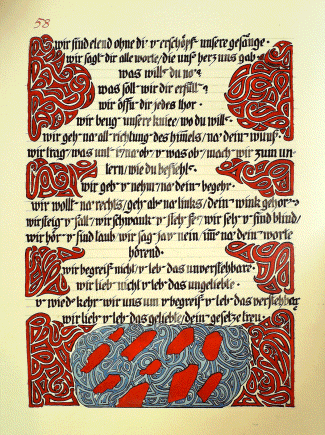 58
wir sind elend ohne di v erschöpf unsere gesänge ·
wir sagt dir alle worte/die uns herz uns gab ·
was willst du no?
was soll wir dir erfüll?
wir öffn dir jedes thor ·
wir beug unsere kniee/wo du will ·
wir geh na all richtung des himels/na dein wuns ·
wir trag was unt ist/na ob v was ob/nach wir zum un-
tern/wie du befiehlst ·
wir geb v nehm na dein begehr ·
wir wollt na rechts/geh ab na links/dein wink gehor
wir steig v fall/wir schwank v steh fest/wir seh v sind blind/
wir hör v sind taub/wir sag ja v nein/ im na dein worte
hörend ·
wir begreif nicht/v leb das unverstehbare ·
wir lieb nicht v leb das ungeliebte ·
v wied kehr wir uns um v begreif v leb das verstehbare
wir lieb v leb das geliebte/dein gesetze treu ·